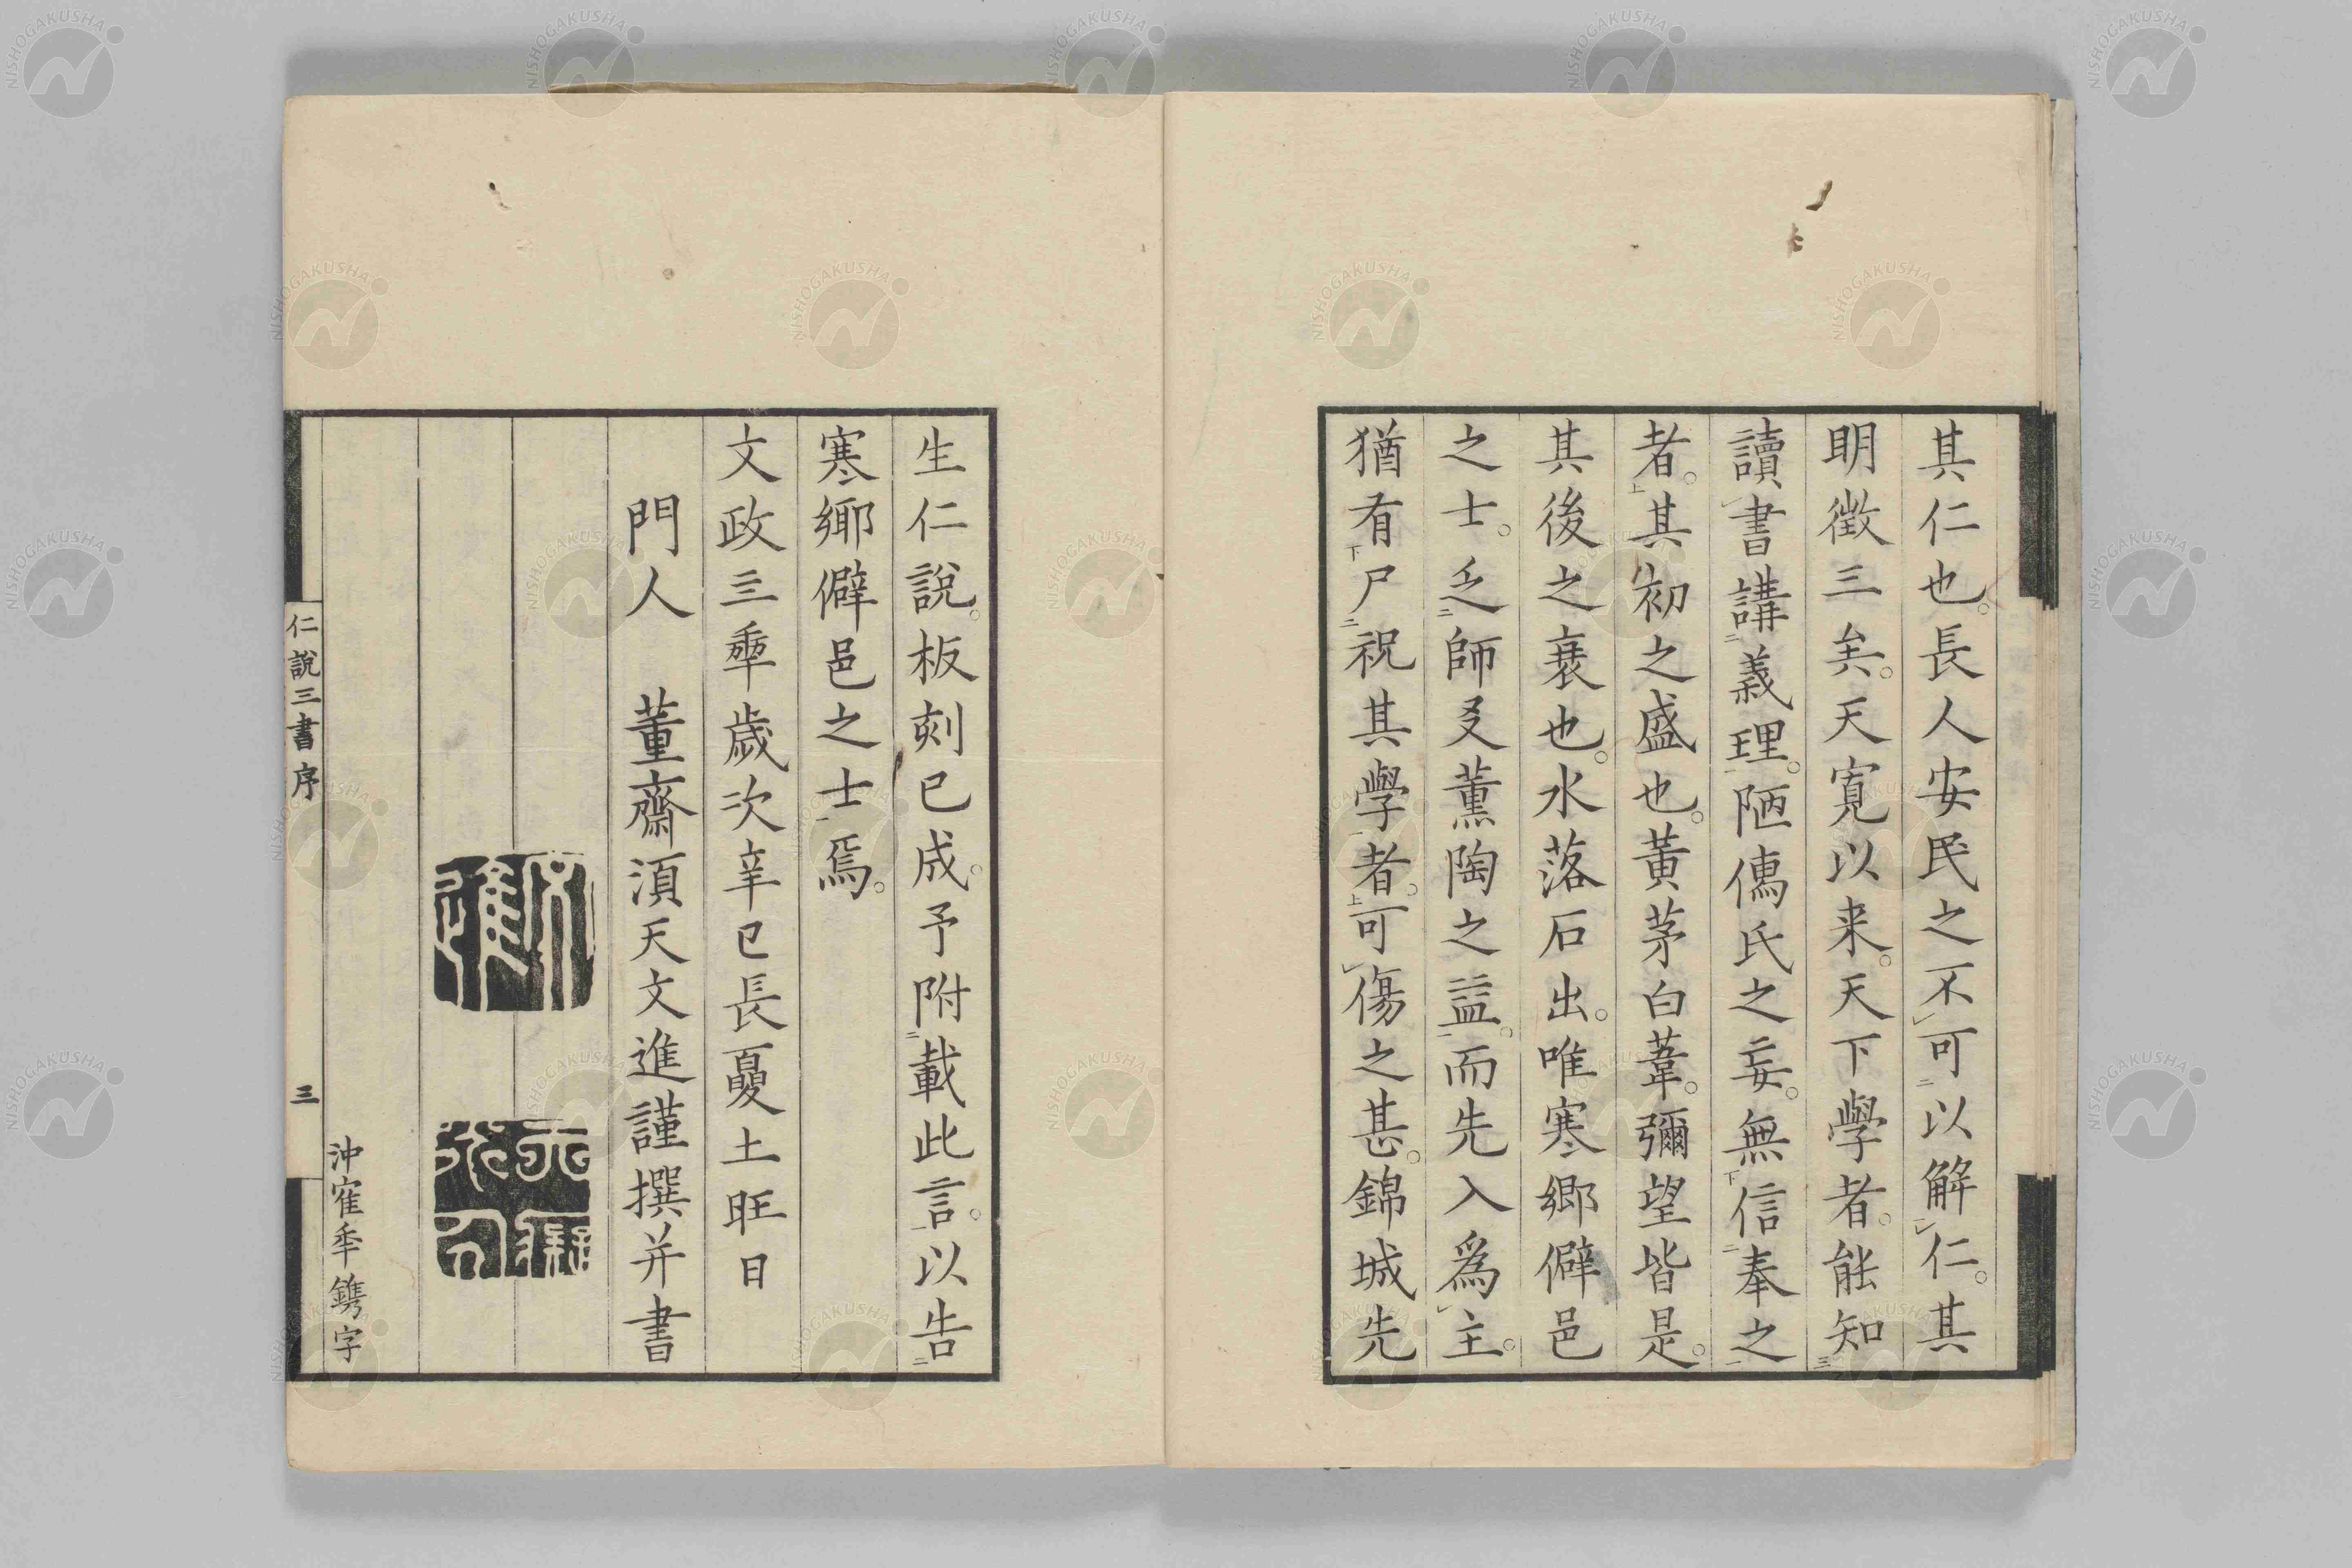 其仁也。長人安民之不可以解仁。其
明徴三矣。天寬以来。天下學者。能知
讀書講義理。陋儁氏之妄。無信奉之
者。其初之盛也。黃茅白葦。彌望皆是。
其後之衰也。水落石出。唯寒郷僻邑
之士。乏師叐薰陶之益。而先入爲主。
猶有尸祝其學者。可傷之甚。錦城先
生仁說。板刻已成。予附載此言。以告
寒鄉僻邑之士焉。
文政三秊歲次辛巳長夏土旺日
門人 董齋湏天文進謹撰并書
沖寉秊鐫字
仁說三書序
三
NISHOGAKUSHA